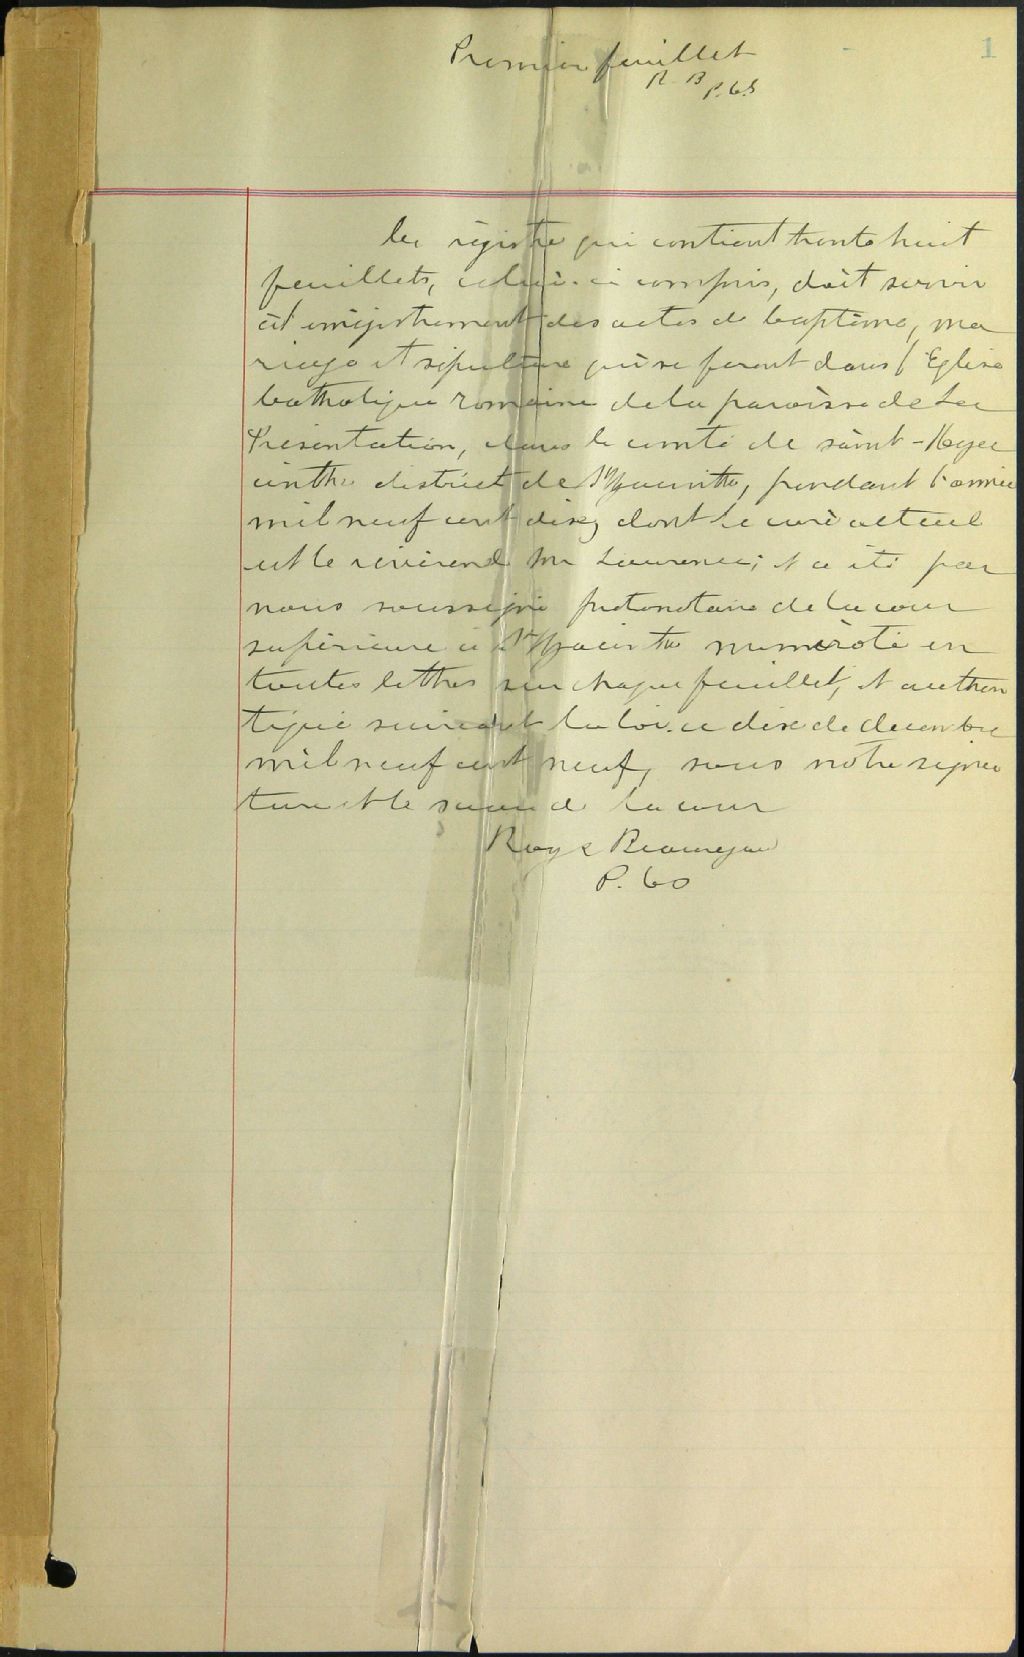 1
Premier feuillet
R B
P.C.S
Ce régistre qui contient trente huit
feuillets, celui-ci compris, doit servir
à l'enrégistrement des actes de baptême, ma
riage et sépulture qui se feront dans l'Eglise
Catholique romaine de la paroisse de La
Présentation, dans le comté de saint-Hyac
inthe district de St Hyacinthe, pendant l'année
mil neuf cent dix, dont le curé actuel
est le révérend Mr Laurence; et a été par
nous soussigné protonotaire de la cour
supérieure à St Hyacinthe numéroté en
toutes lettres sur chaque feuillet, et authen
tiqué suivant la loi. ce dix de décembre
mil neuf cent neuf, sous notre signa
ture et le sceau de la cour
Roy & Beauregard
P. C. S